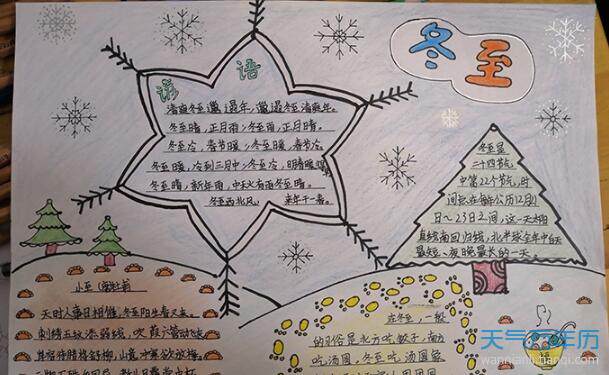 冬至
谚语
清爽冬至邋遢年,邋遢冬至清爽年。
冬至晴,正月雨;冬至雨,正月晴。
冬至冷,春节暖;冬至暖,春节冷。
冬至暖,冷到三月中;冬至冷,明春暖
冬至晴,新年雨,中秋有雨冬至晴。
冬至西北风,来年干一春。
冬至是
二十四节气
中第22个节气,时
间是在每年公历12月21
日~23日之间,这一天太阳
直射南回归线,北半球全年中白天
最短、夜晚最长的一天。
小至
天时人事日相催,冬至阳生春又来。
刺绣五纹添弱线,吹葭六管动
岸容待腊将舒柳,山意冲寒欲放梅。
在冬至,一般
的习俗是北方吃饺子,南方
吃汤圆,冬至吃汤圆象
天气万年历
wannianli.tianqi.com